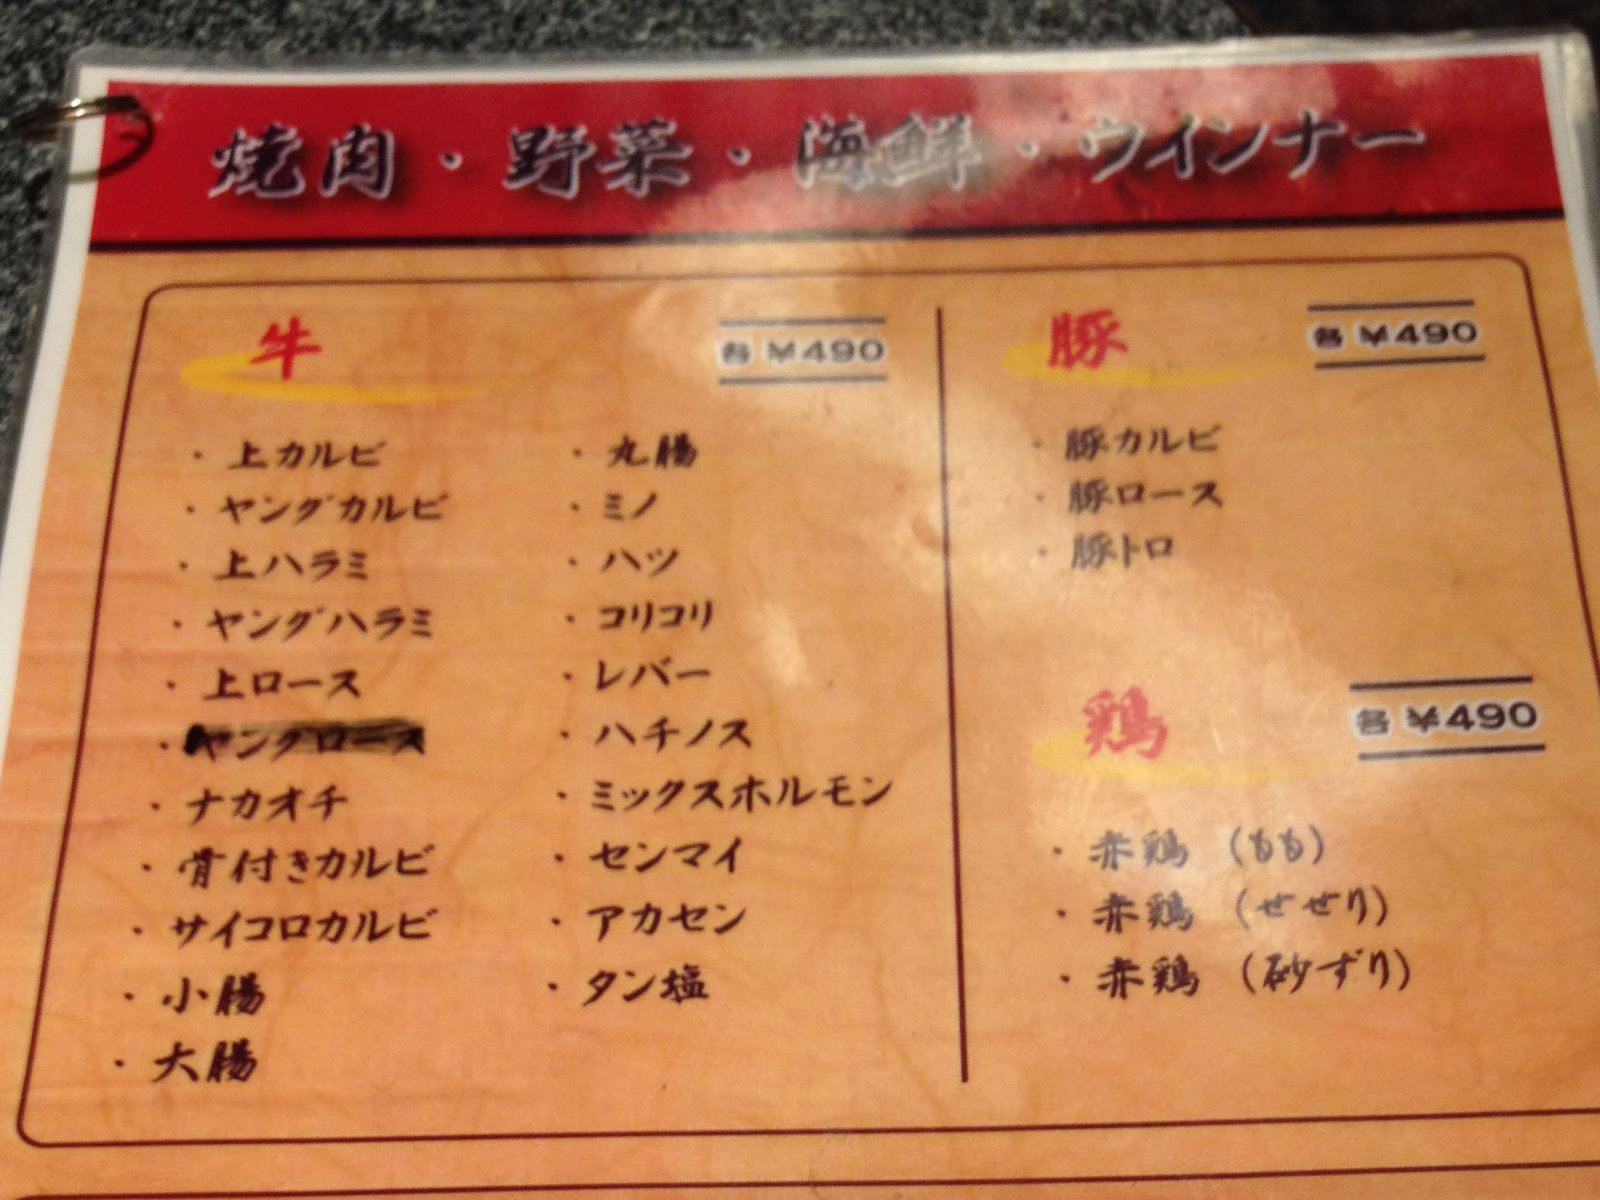 焼肉・野菜・海鮮・ウインナー
牛
各 ¥490
・上カルビ
・ヤングカルビ
・上ハラミ
・ヤングハラミ
・上ロース
・ヤングロース
・ナカオチ
・骨付きカルビ
・サイコロカルビ
・小腸
・大腸
・丸腸
・ミノ
・ハツ
・コリコリ
・レバー
・ハチノス
・ミックスホルモン
・センマイ
・アカセン
・タン塩
豚
各 ¥490
・豚カルビ
・豚ロース
・豚トロ
鶏
各 ¥490
・赤鶏（もも）
・赤鶏（せせり）
・赤鶏（砂ずり）